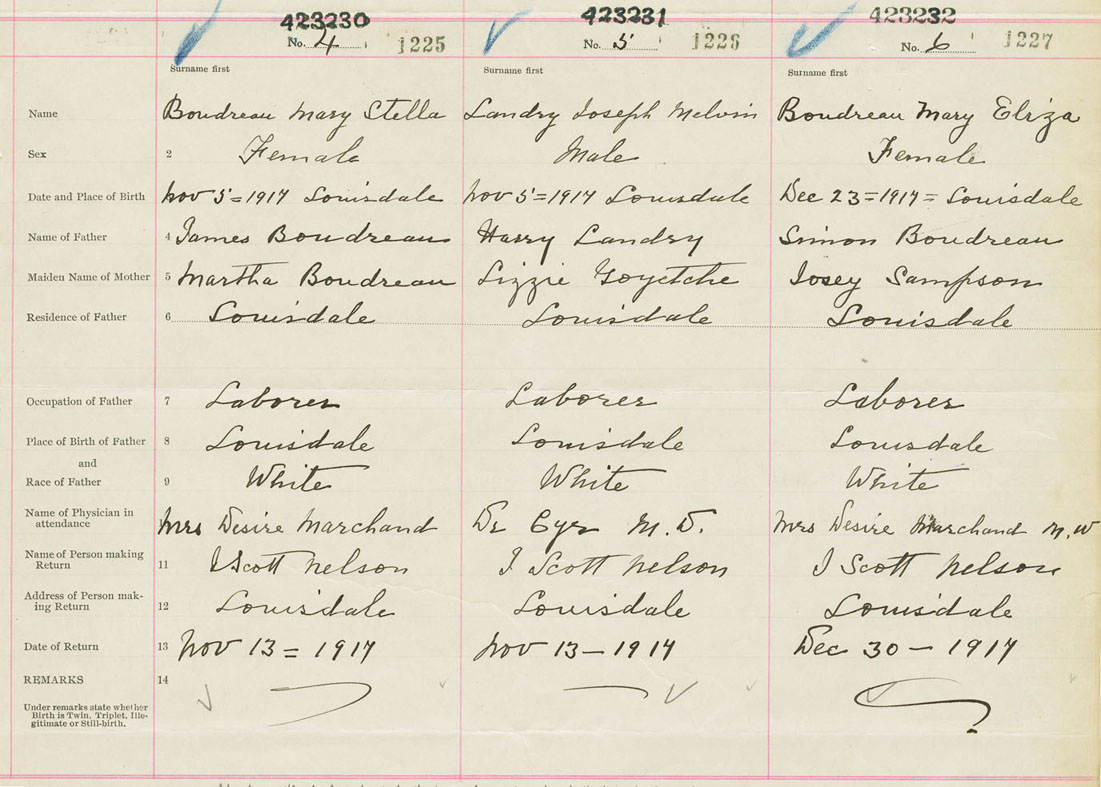 423230 423231 423232
No. 4 1225 No. 5 1226 No. 6 1227
Surname first Surname first Surname first
Name Boudreau Mary Stella Landry Joseph Melvin Boudreau Mary Eliza
Sex 2 Female Male Female
Date and Place of Birth Nov 5=1917 Louisdale Nov 5=1917 Louisdale Dec 23=1917= Louisdale
Name of Father 4 James Boudreau Harry Landry Simon Boudreau
Maiden Name of Mother 5 Martha Boudreau Lizzie Goyetche Josey Sampson
Residence of Father 6 Louisdale Louisdale Louisdale
Occupation of Father 7 Laborer Laborer Laborer
Place of Birth of Father 8 Louisdale Louisdale Louisdale
and
Race of Father 9 White White White
Name of Physician in
attendance Mrs Desire Marchand Dr Cyr M.D. Mrs Desire Marchand M.W
Name of Person making
Return 11 J Scott Nelson J Scott Nelson J Scott Nelson
Address of Person mak-
ing Return 12 Louisdale Louisdale Louisdale
Date of Return 13 Nov 13=1917 Nov 13-1917 Dec 30-1917
REMARKS 14
Under remarks state whether
Birth is Twin, Triplet, Ille-
gitimate or Still-birth.